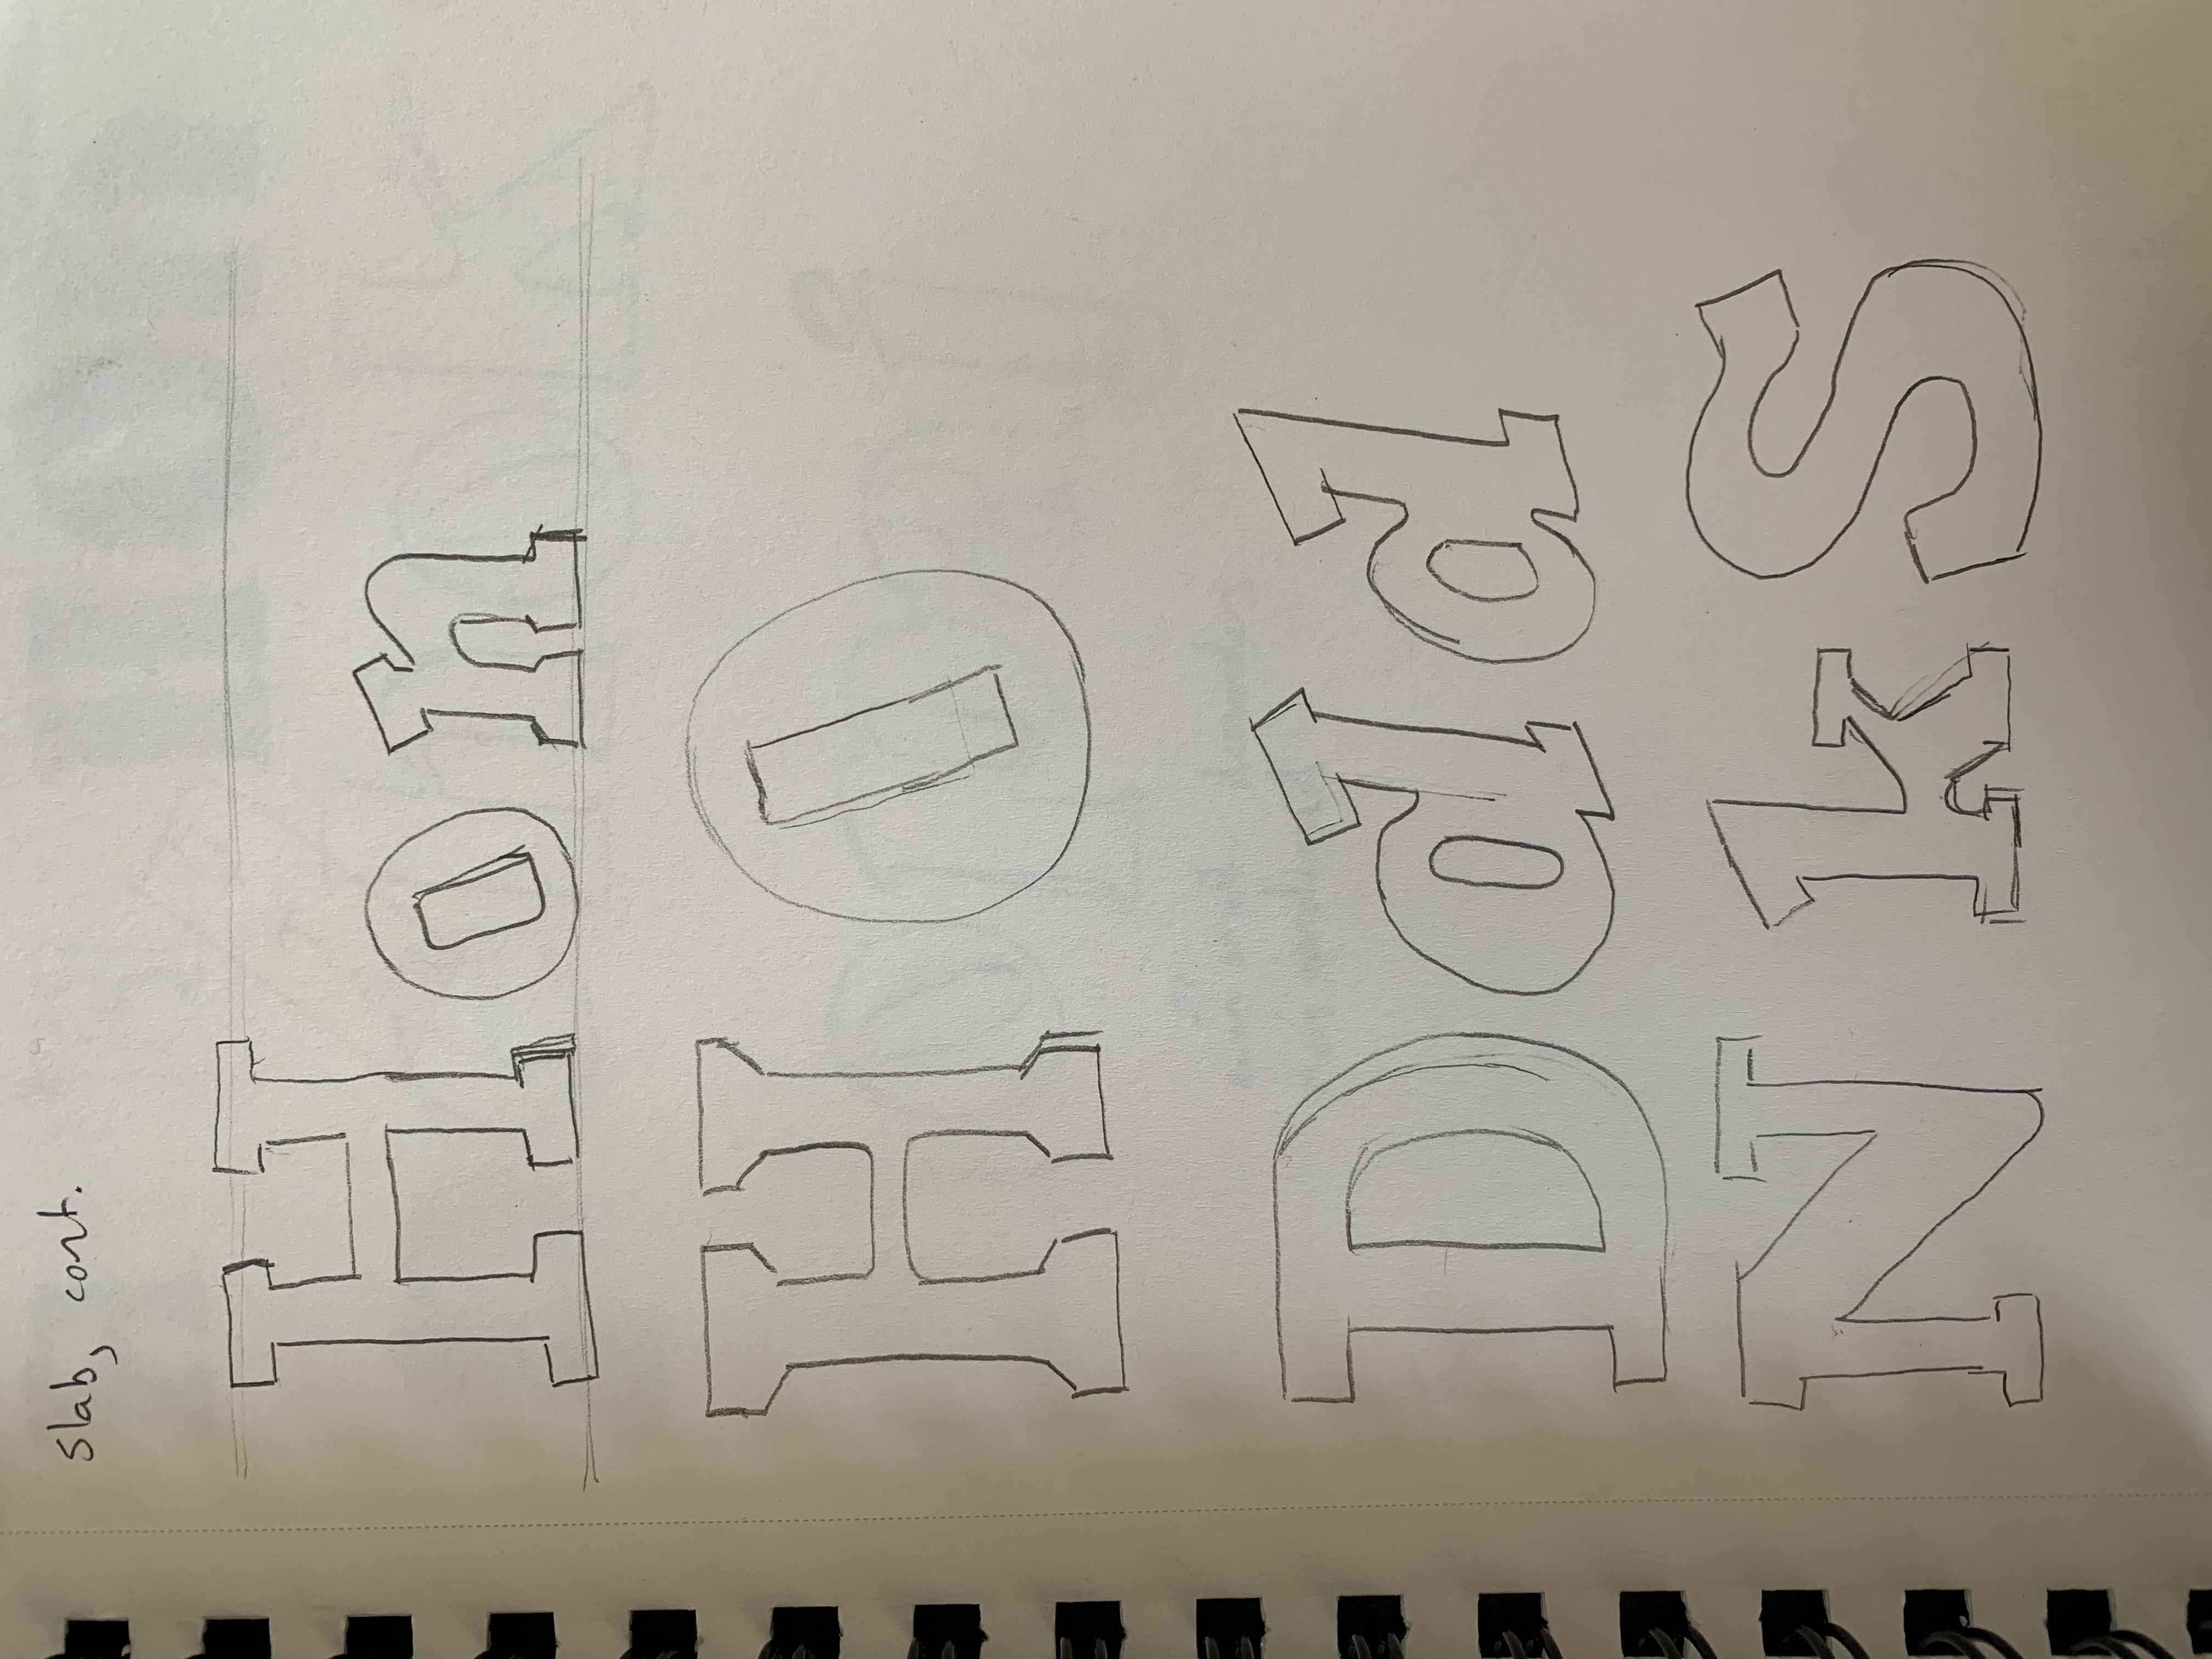 slab, cont.
Hon
HO
Ddd
NkS